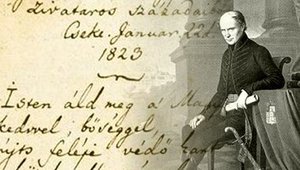 Zivataros Századaiból
Cseke. Januar. 22d
1823
Isten áld meg a' Magy
kedvvel, bőséggel,
nyújts feléje védő kart